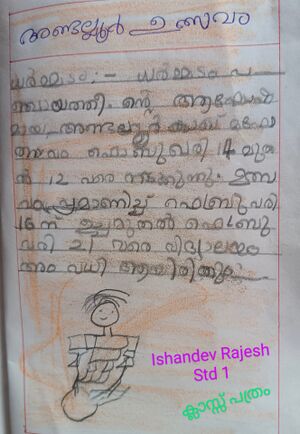 അണ്ടല്ലൂർ ഉത്സവം
ധർമ്മടം:- ധർമ്മടം പ
ഞ്ചായത്തി ന്റെ ആഘോഷ
മായ അണ്ടല്ലൂർ കാവ് മഹോ
ത്സവം ഫെബ്രുവരി 14 മുത
ൽ വരെ നടക്കുന്നു. ഉത്സ
ഫെബ്രുവരി
16 ന് ഉച്ചമുതൽ ഫെബ്രു
വരി 21 വരെ വിദ്യാലയം
Ishandev Rajesh
Std 1
ക്ലാസ്സ് പത്രം